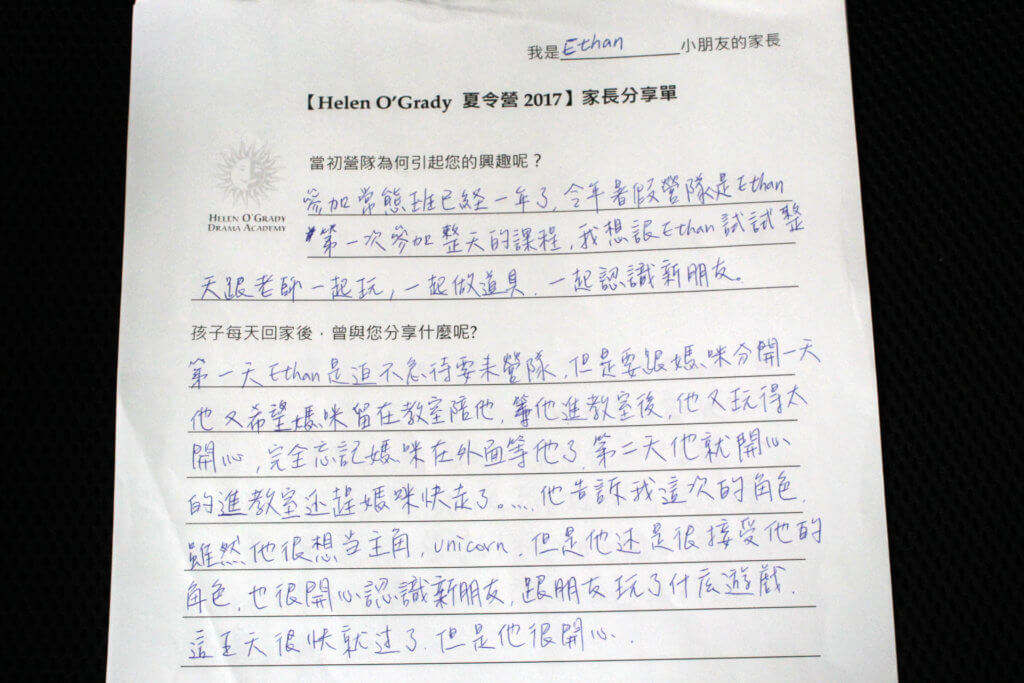 我是 Ethan 小朋友的家長
【Helen O'Grady 夏令營 2017】家長分享單
HELEN O'GRADY
DRAMA ACADEMY
當初營隊為何引起您的興趣呢？
參加常態班已経一年了,今年暑假營隊是Ethan
第一次參加整天的課程,我想讓Ethan試試整
天跟老師一起玩,一起做道具.一起認識新朋友。
孩子每天回家後，曾與您分享什麼呢?
第一天Ethan是迫不急待要來營隊,但是要跟媽咪分開一天
他又希望媽咪留在教室陪他,等他進教室後,他又玩得太
開心,完全忘記媽咪在外面等他了.第二天他就開心
的進教室还趕媽咪快走了。....他告訴我這次的角色.
雖然他很想当主角,unicorn,但是他还是很接受他的
角色,也很開心認識新朋友,跟朋友玩了什麼遊戲.
這五天很快就过了.但是他很開心..